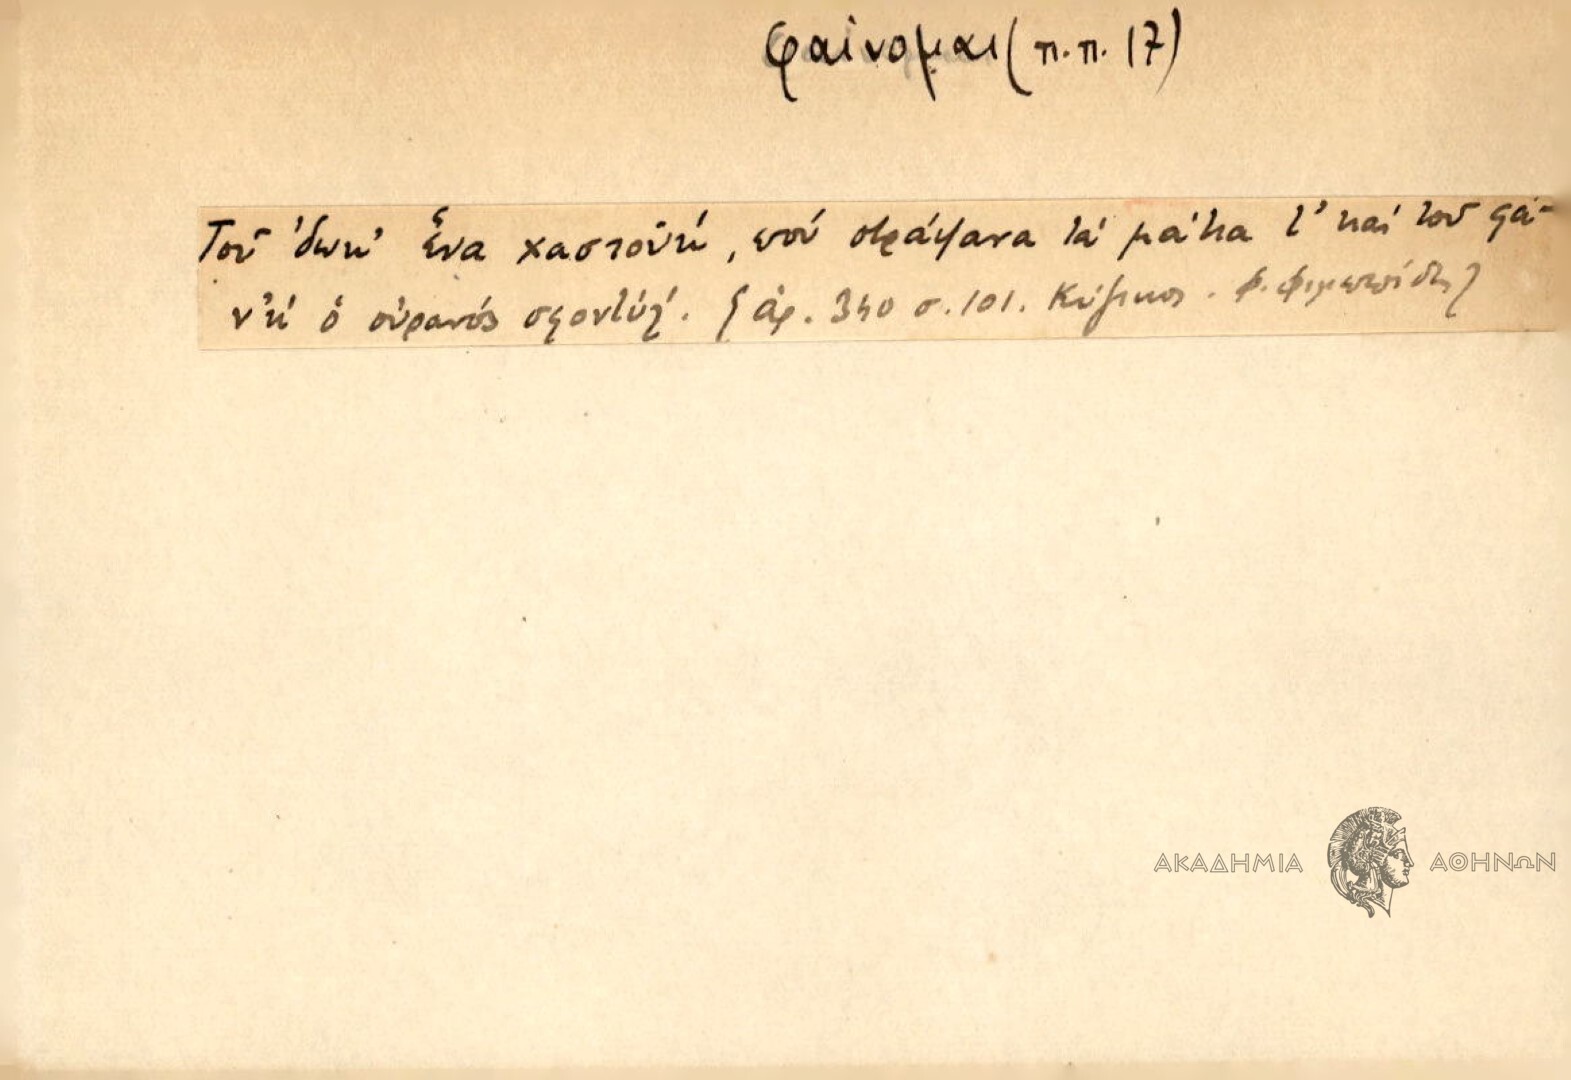 φαίνομαι (π.π. 17)
Τοῦ 'δωκ' ἕνα χαστούκι, πού στράψανα τά μάτια τ' καί τοῦ φά-
ν'κι ὁ οὐρανός σφοντύλ'. [ἀρ. 340 σ. 101. Κύζικος.
ΑΚΑΔΗΜΙΑ ΑΘΗΝΩΝ